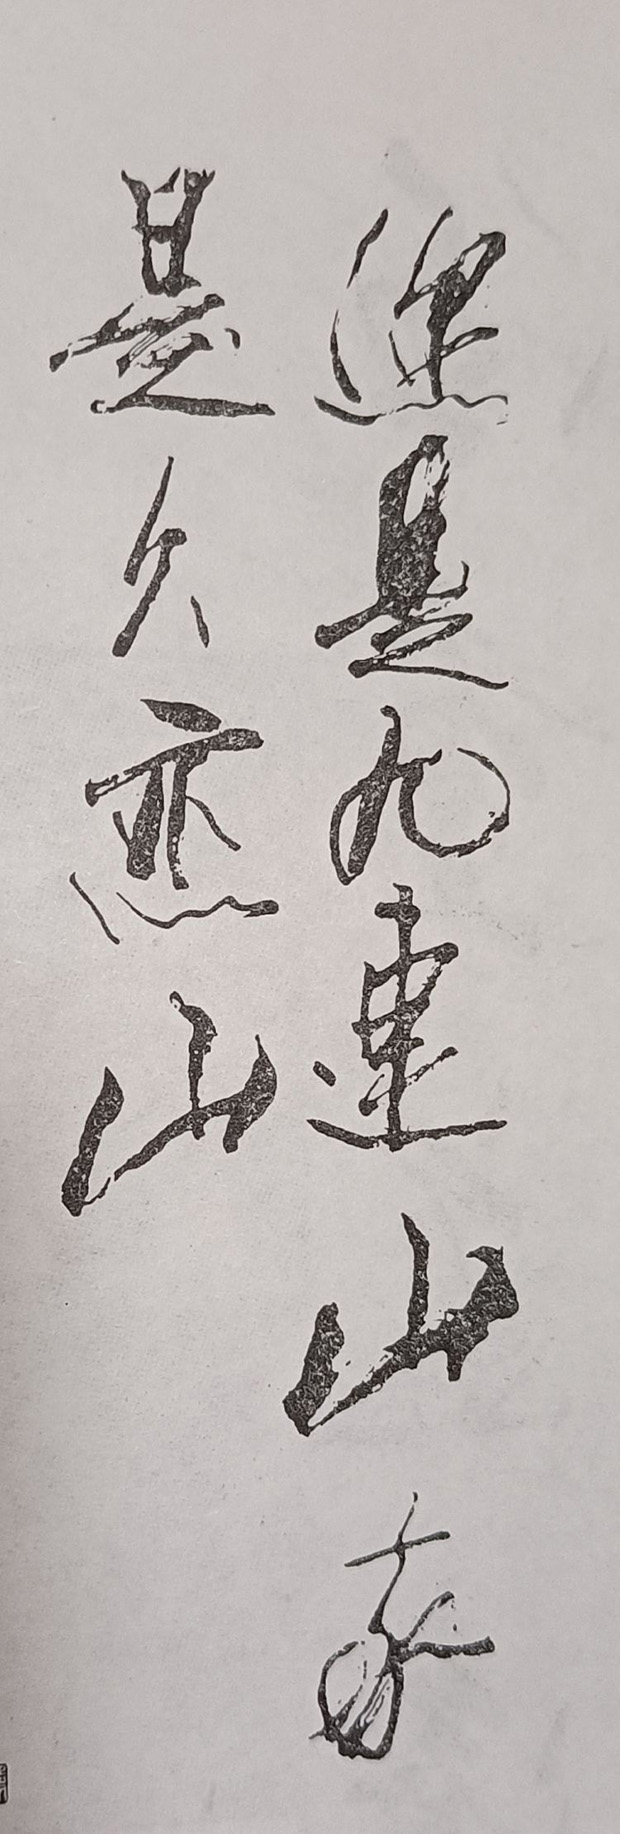 是九連山
是久恋山